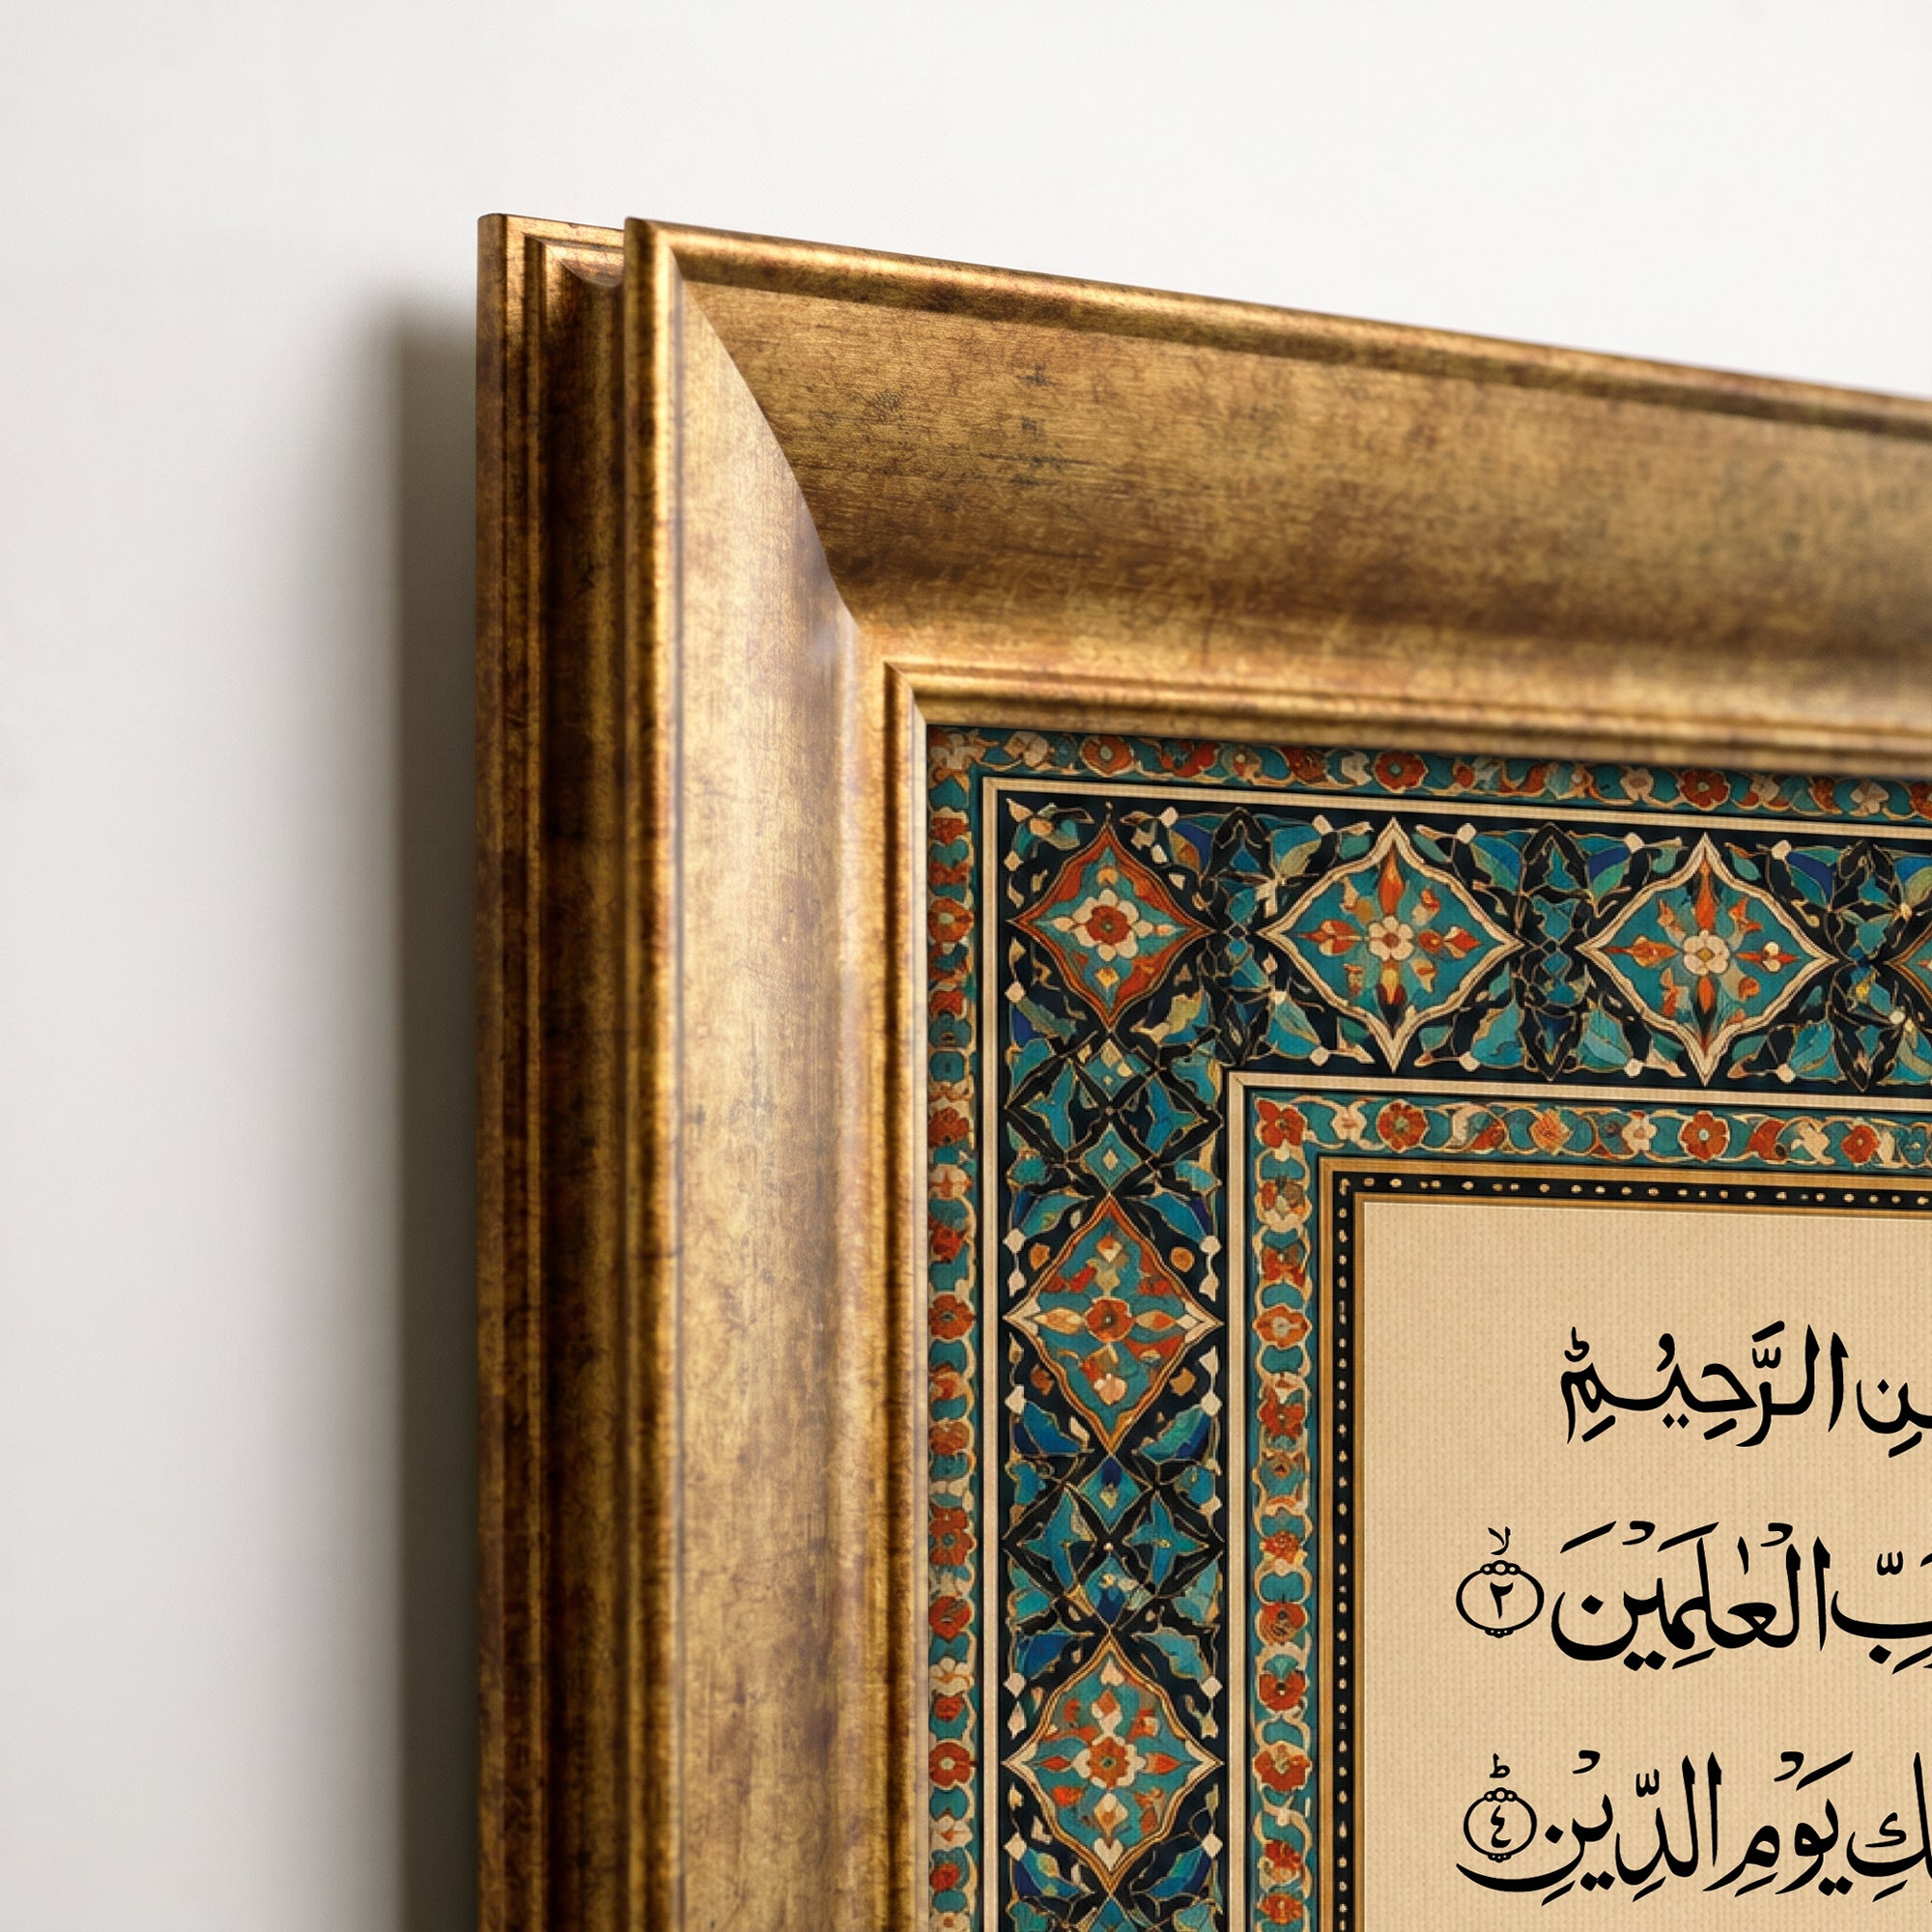 الرَّحِيْمِؕ
رَبِّ الْعٰلَمِيْنَ ۙ‏﴿۲﴾
يَوْمِ الدِّيْنِؕ‏﴿۴﴾